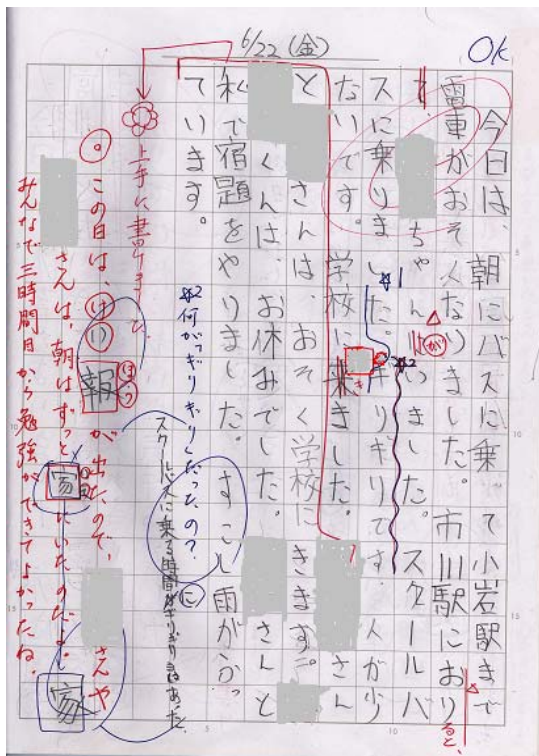 6/22(金)
OK
今日は、朝にバスに乗って小岩駅まで
電車がおそくなりました。市川駅におりると、
ちゃんがいました。スクールバ
スに乗りました。ギリギリです。人が少
ないです。学校に来ました。さん
とさんは、おそく学校にきます。
くんは、お休みでした。さんと
私で宿題をやりました。すこし雨がふっ
ています。
※1
※2
※2何がギリギリだったの?
スクールバスに乗る時間がギリギリであった
に
上手に書けました
この日は、けいほうが出たので、さんや
報
さんは、朝はずっと家にいたのだよ。
家
みんなで三時間目から勉強ができてよかったね。